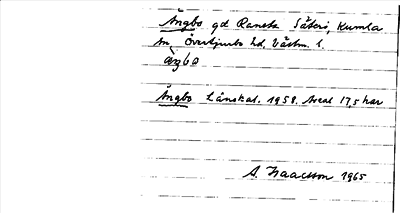 Ängbo gd Ransta Säteri, Kumla
sn, Övertjurbo hd, Västm. l.
àŋbo
Ängbo Länskat. 1958. Areal 175 har
A. Isaacsson 1965